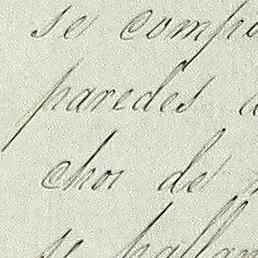 se compo
paredes
chos de
se hallan